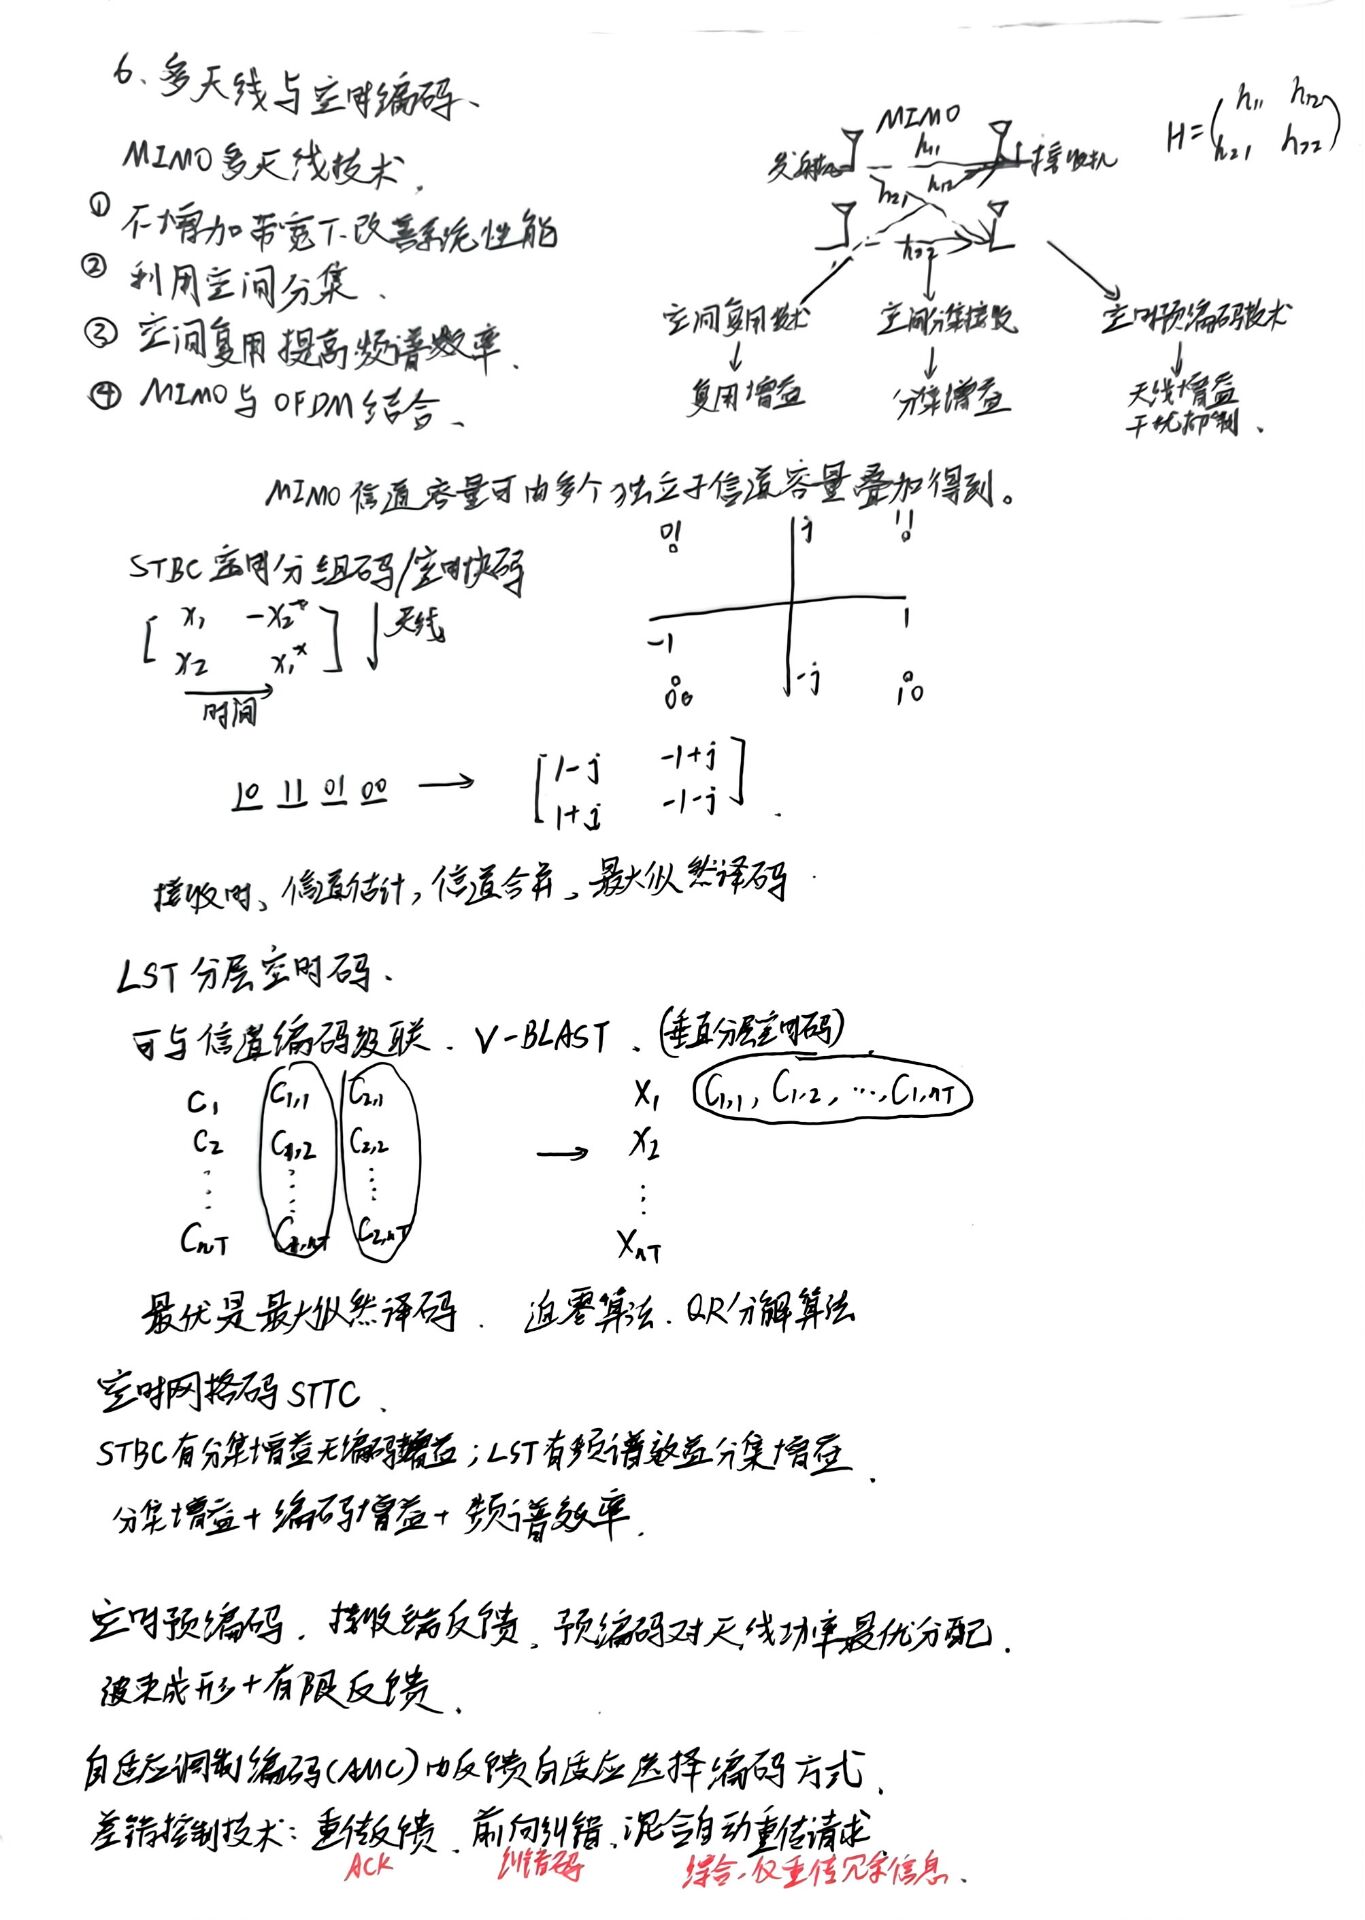 6、多天线与空时编码、
MIMO多天线技术,
① 不增加带宽下、改善系统性能
② 利用空间分集、
③ 空间复用提高频谱效率.
④ MIMO与OFDM结合、
MIMO
发射机 h11 接收机
h21 h12
h22
H=(h11 h12
h21 h22)
空间复用技术 空间分集接收 空时预编码技术
复用增益 分集增益 天线增益
干扰抑制、
MIMO信道容量可由多个独立子信道容量叠加得到。
STBC 空时分组码/空时块码
[ x1 -x2*
x2 x1* ] 天线
时间
01 j 11
-1 1
00 -j 10
10 11 01 00 → [ 1-j -1+j
1+j -1-j ] .
接收时、信道估计,信道合并、最大似然译码.
LST 分层空时码、
可与信道编码级联. V-BLAST、(垂直分层空时码)
C1 C1,1 C2,1 X1 C1,1, C1,2, …, C1,nT
C2 C1,2 C2,2 → X2
⋮ ⋮ ⋮ ⋮
CnT C1,nT C2,nT XnT
最优是最大似然译码. 迫零算法. QR分解算法
空时网格码 STTC、
STBC有分集增益无编码增益;LST有频谱效益分集增益.
分集增益+编码增益+频谱效率.
空时预编码. 接收端反馈、预编码对天线功率最优分配.
波束成形+有限反馈.
自适应调制编码(AMC)由反馈自适应选择编码方式.
差错控制技术:重传反馈、前向纠错、混合自动重传请求
ACK 纠错码 综合、仅重传冗余信息.